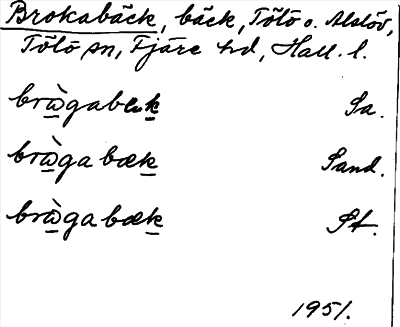 Brokabäck, bäck, Tölö o. Alslöv,
Tölö sn, Fjäre hd, Hall. l.
brὼgabɛk Sa.
brὼgabæk Sand.
brὼgabæk St.
1951.